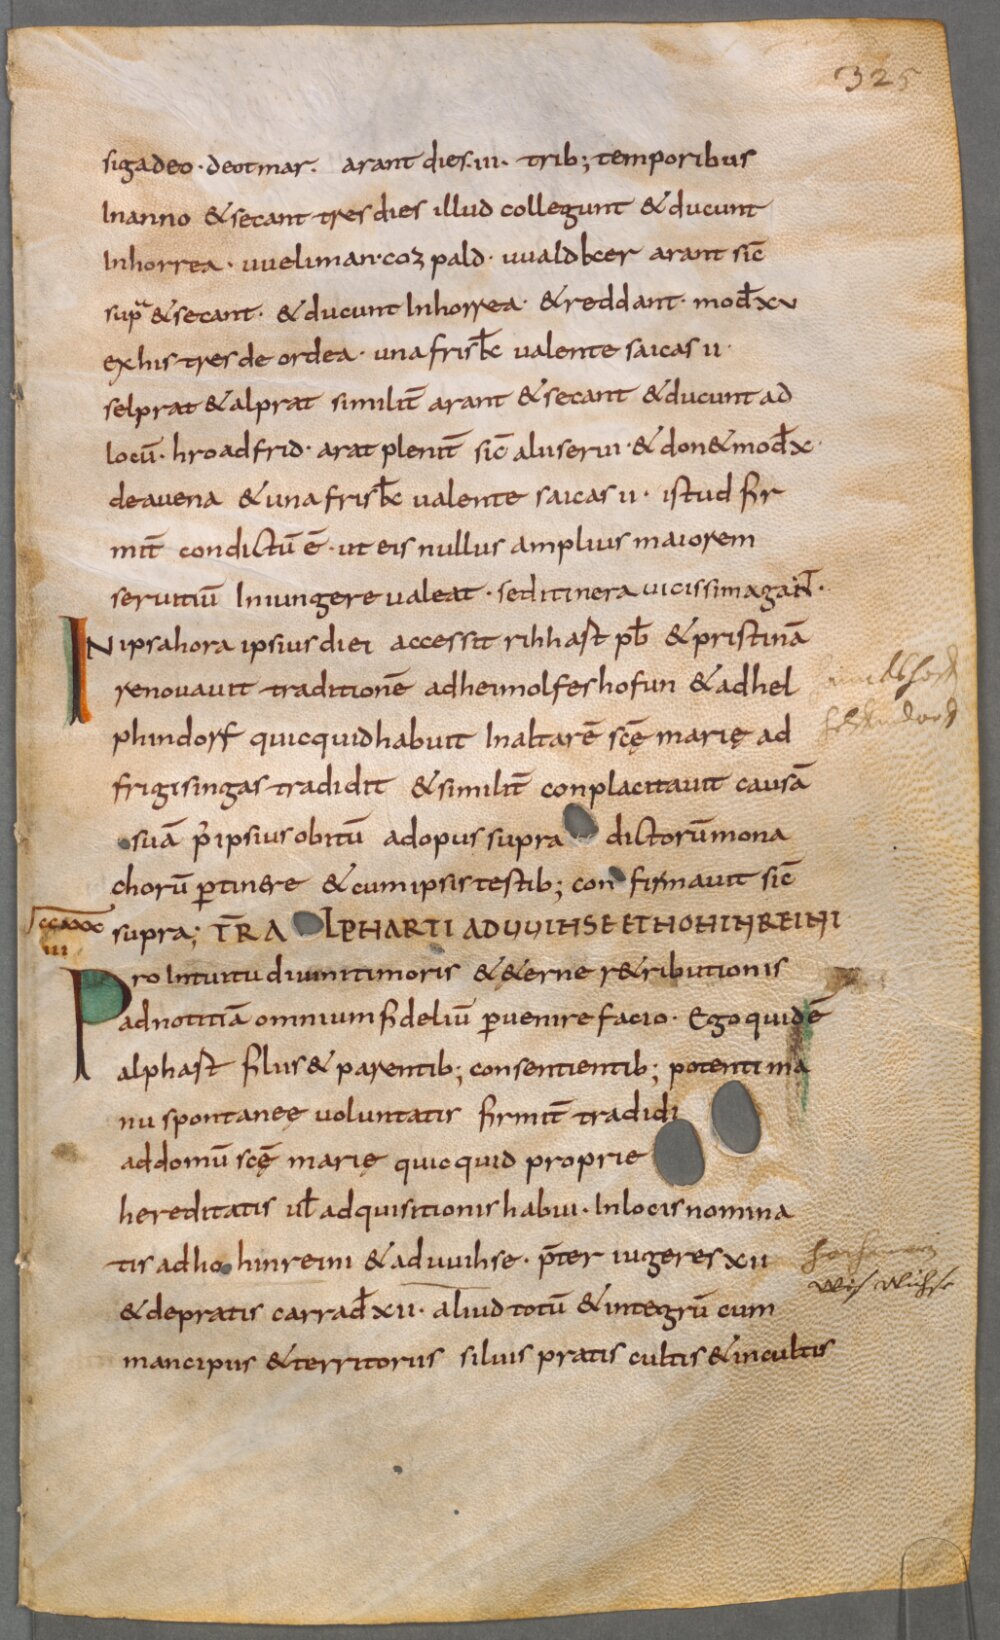 325
sigadeo · deotmar · arant dies · iii · trib; temporibus
In anno & secant tres dies illud collegunt & ducunt
In horrea · uueliman · cozpald · uualdker arant sic̄
supᵃ & secant · & ducunt In horrea · & reddant · mod̄ xv
ex his tres de ordea · una frisk̄c ualente saicas ii ·
selprat & alprat similit̄ arant & secant & ducunt ad
locū · hroadfrid · arat plenit̄ sic̄ alii serui · & don& mod̄ x ·
de auena & una frisk̄c ualente saicas ii · istud fir
mit̄ condictū ē · ut eis nullus amplius maiorem
seruitiū Iniungere ualeat · sed itinera uicissim agant̄ ·
IN ipsa hora ipsius diei accessit rihhast pb̄ & pristinā
renouauit traditionē ad heimolfeshofun & ad hel
phindorf quicquid habuit In altarē scę̄ marię ad
frigisingas tradidit & similit̄ conplacitauit causā
suā p̄ ipsius obitū ad opus supra dictorū mona
chorū ptin&re & cum ipsis testib; con firmauit sic̄
supra; TR̄A ALPHARTI AD UUIHSE ET HOHINREINI
ccxxx
iii
Pro Intuitu diuini timoris & &erne r&ributionis
ad notitiā omnium fideliū puenire facio · Ego quidē
alphast filus & parentib; consentientib; potenti ma
nu spontaneę uoluntatis firmit̄ tradidi
ad domū scę̄ marię quicquid proprie
hereditatis ul̄ adquisitionis habui · In locis nomina
tis ad ho hinreini & ad uuihse · p̄ter iugeres xii
& de pratis carrad̄ xii · aliud totū & integrū cum
mancipiis & territoriis siluis pratis cultis & incultis